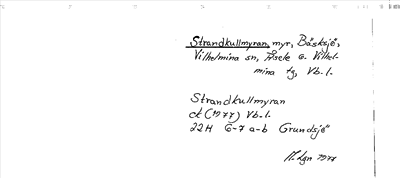 Strandkullmyran, myr, Bäsksjö,
Vilhelmina sn, Åsele o. Vilhel-
mina tg, Vb. l.
Strandkullmyran
ek (1977) Vb. l.
22H 6-7 a-b Grundsjö
1977